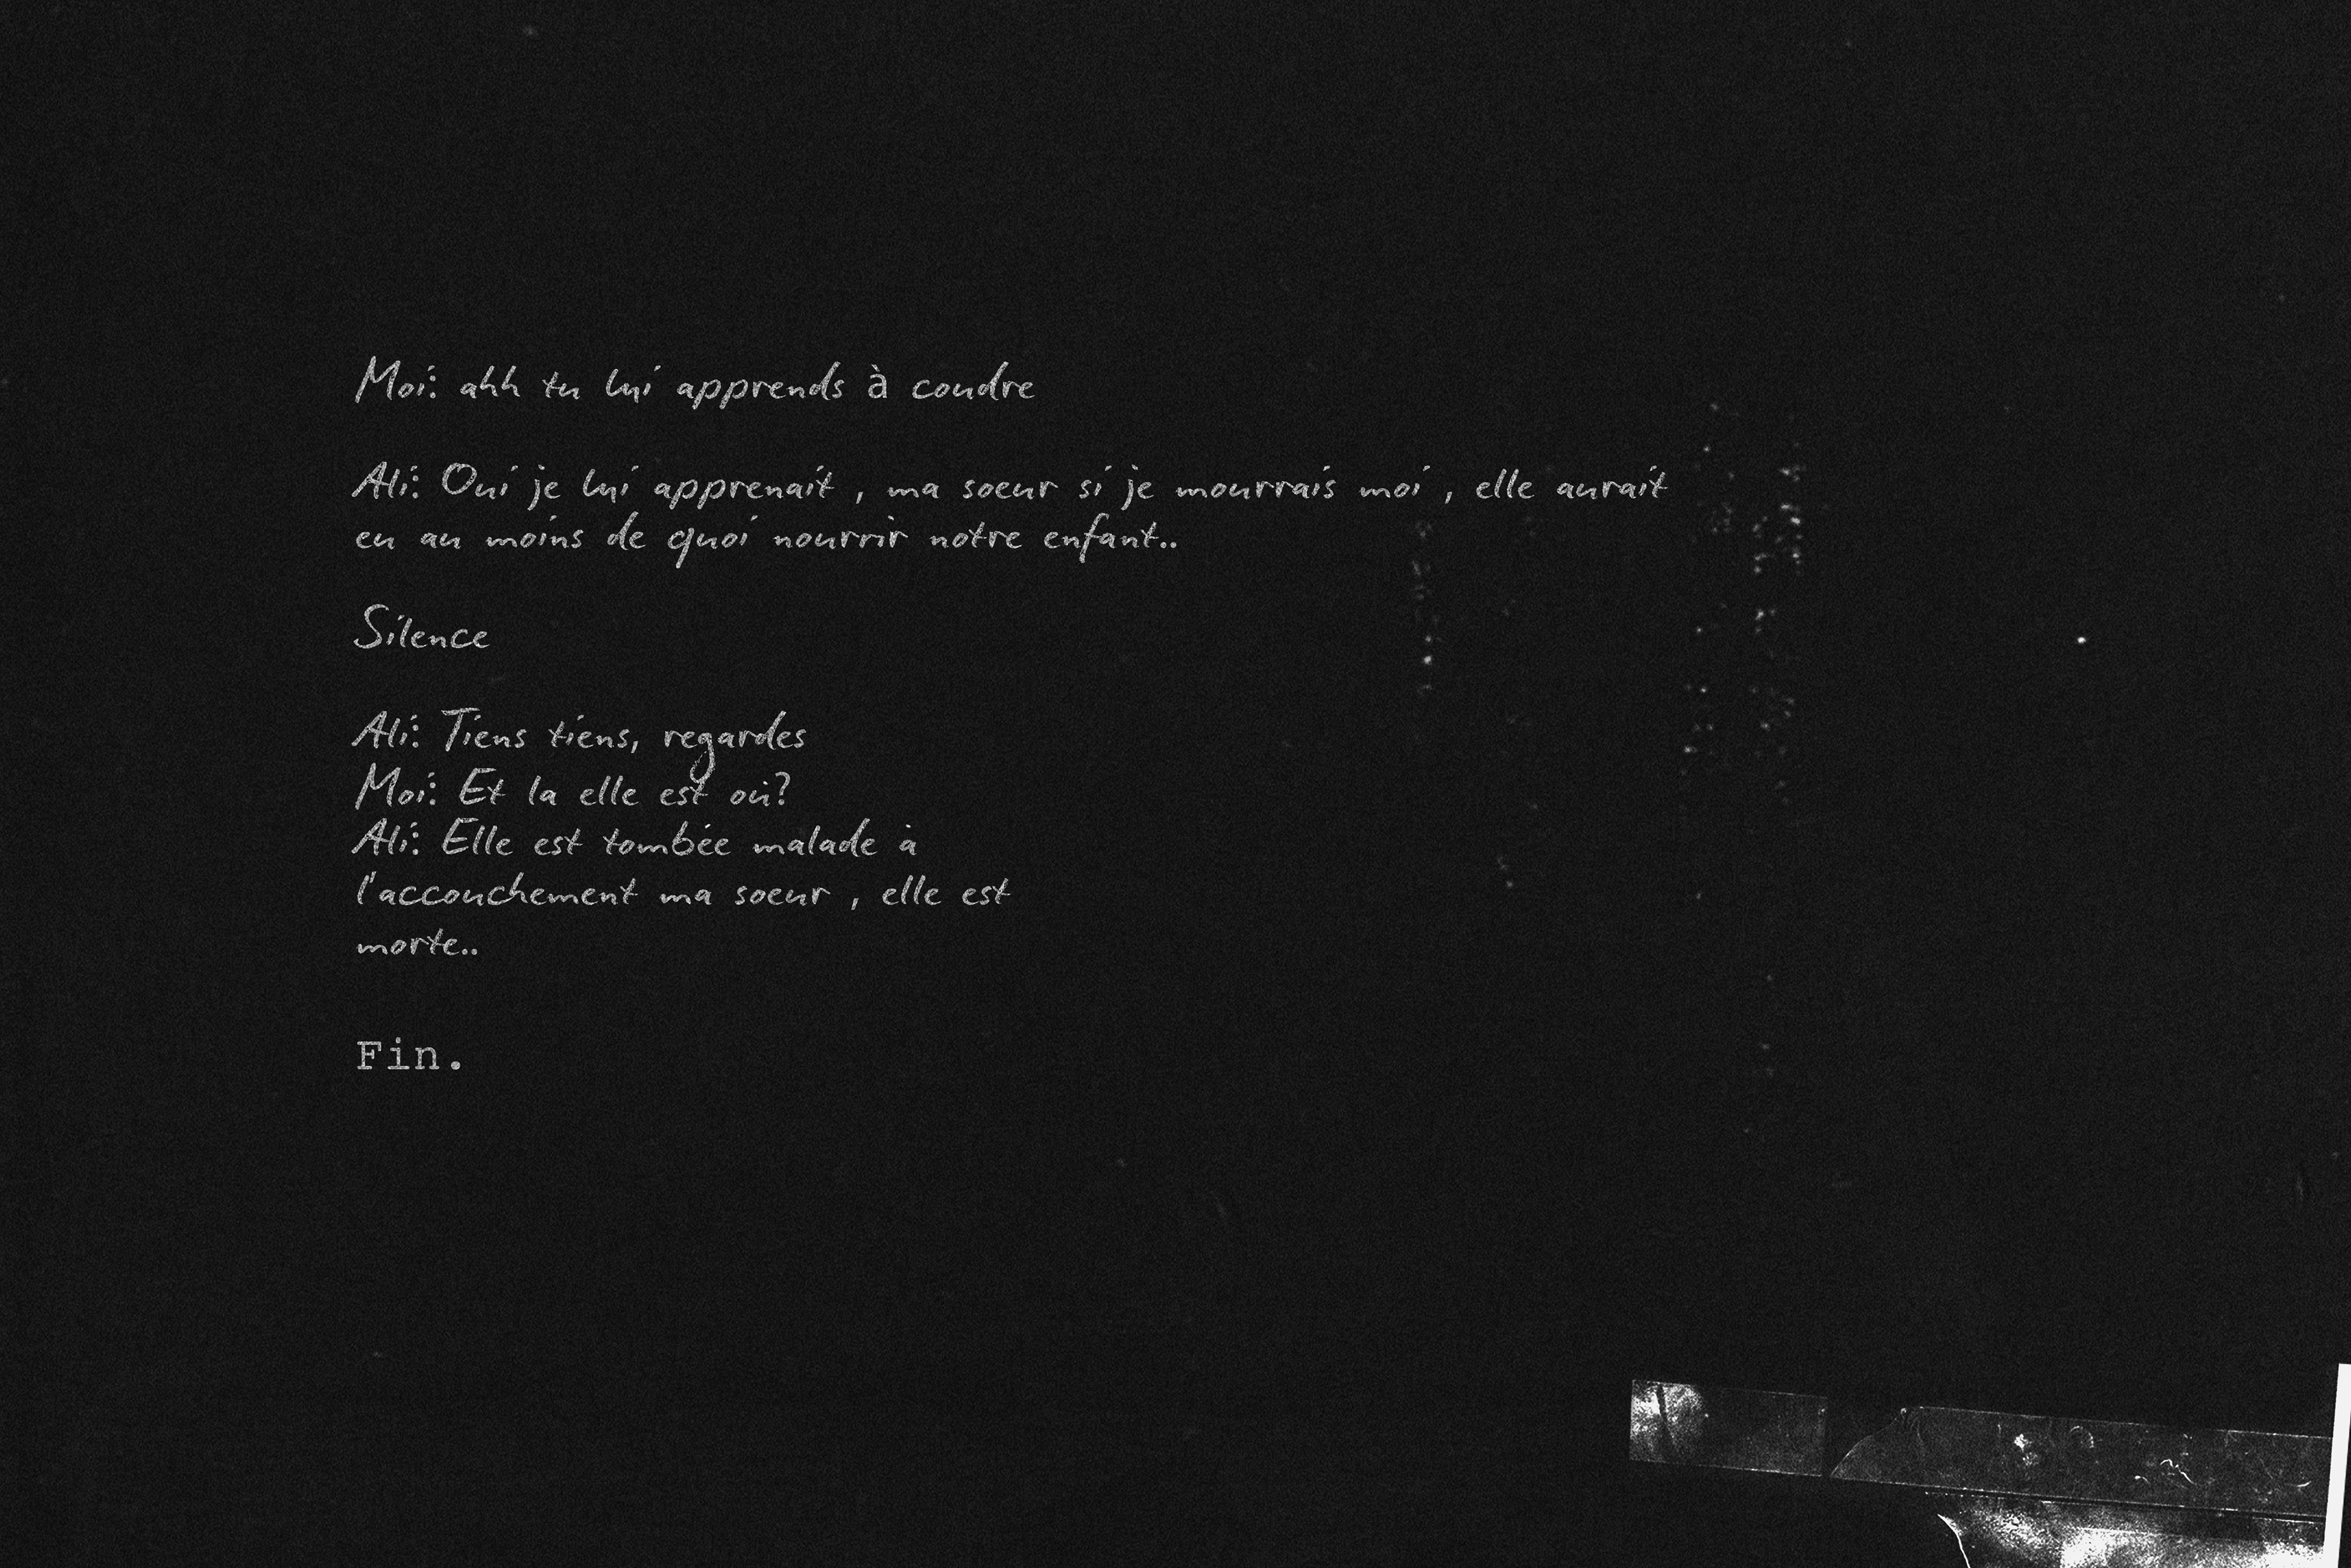 Moi: ahh tu lui apprends à coudre
Ali: Oui je lui apprenait , ma soeur si je mourrais moi , elle aurait
eu au moins de quoi nourrir notre enfant..
Silence
Ali: Tiens tiens, regardes
Moi: Et la elle est où?
Ali: Elle est tombée malade à
l'accouchement ma soeur , elle est
morte..
Fin.